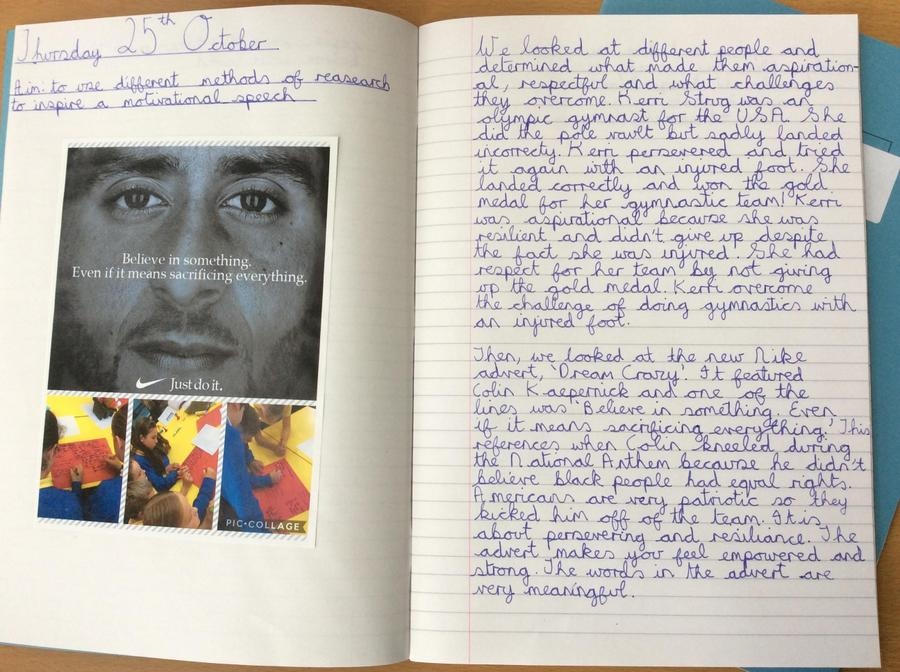 Thursday 25th October
Aim: to use different methods of reasearch
to inspire a motivational speech
Believe in something.
Even if it means sacrificing everything.
Just do it.
PIC•COLLAGE
We looked at different people and
determined what made them aspiration-
al, respectful and what challenges
they overcome. Kerri Strug was an
olympic gymnast for the USA. She
did the pole vault but sadly landed
incorrecty. Kerri persevered and tried
it again with an injured foot. She
landed correctly and won the gold
medal for her gymnastic team! Kerri
was aspirational because she was
resilient and didn't give up despite
the fact she was injured. She had
respect for her team by not giving
up the gold medal. Kerri overcome
the challenge of doing gymnastics with
an injured foot.
Then, we looked at the new Nike
advert, 'Dream Crazy'. It featured
Colin Kaepernick and one of the
lines was 'Believe in something. Even
if it means sacrificing everything.' This
references when Colin kneeled during
the National Anthem because he didn't
believe black people had equal rights.
Americans are very patriotic so they
kicked him off of the team. It is
about persevering and resiliance. The
advert makes you feel empowered and
strong. The words in the advert are
very meaningful.